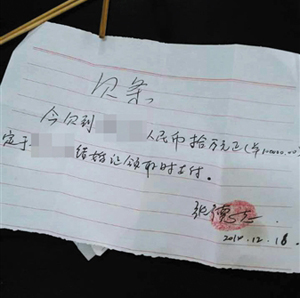 欠条
今欠到 人民币拾万元正(¥100000.00)
定于 结婚证领取时支付。
张德
2014.12.18.